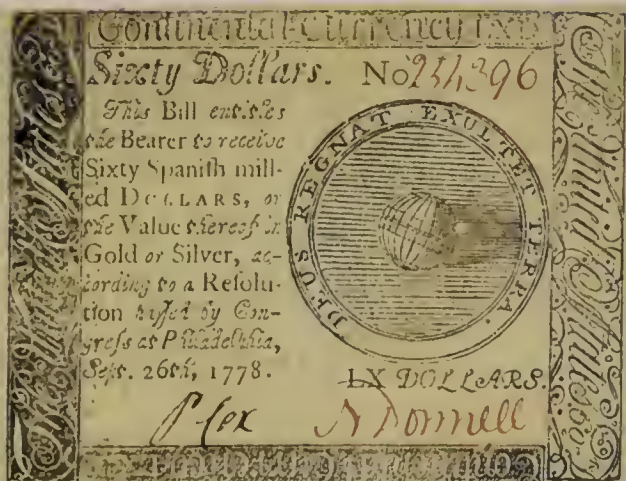 Continental-Currency LXD
Sixty Dollars. No 234396
This Bill entitles
the Bearer to receive
Sixty Spaniſh mill-
ed DOLLARS, or
the Value thereof in
Gold or Silver, ac-
cording to a Reſolu-
tion paſſed by Con-
greſs at Philadelphia,
Sept. 26th, 1778.
DEUS REGNAT EXULTET TERRA.
LX DOLLARS.
P Cox
N Donnell
The United States
The United States